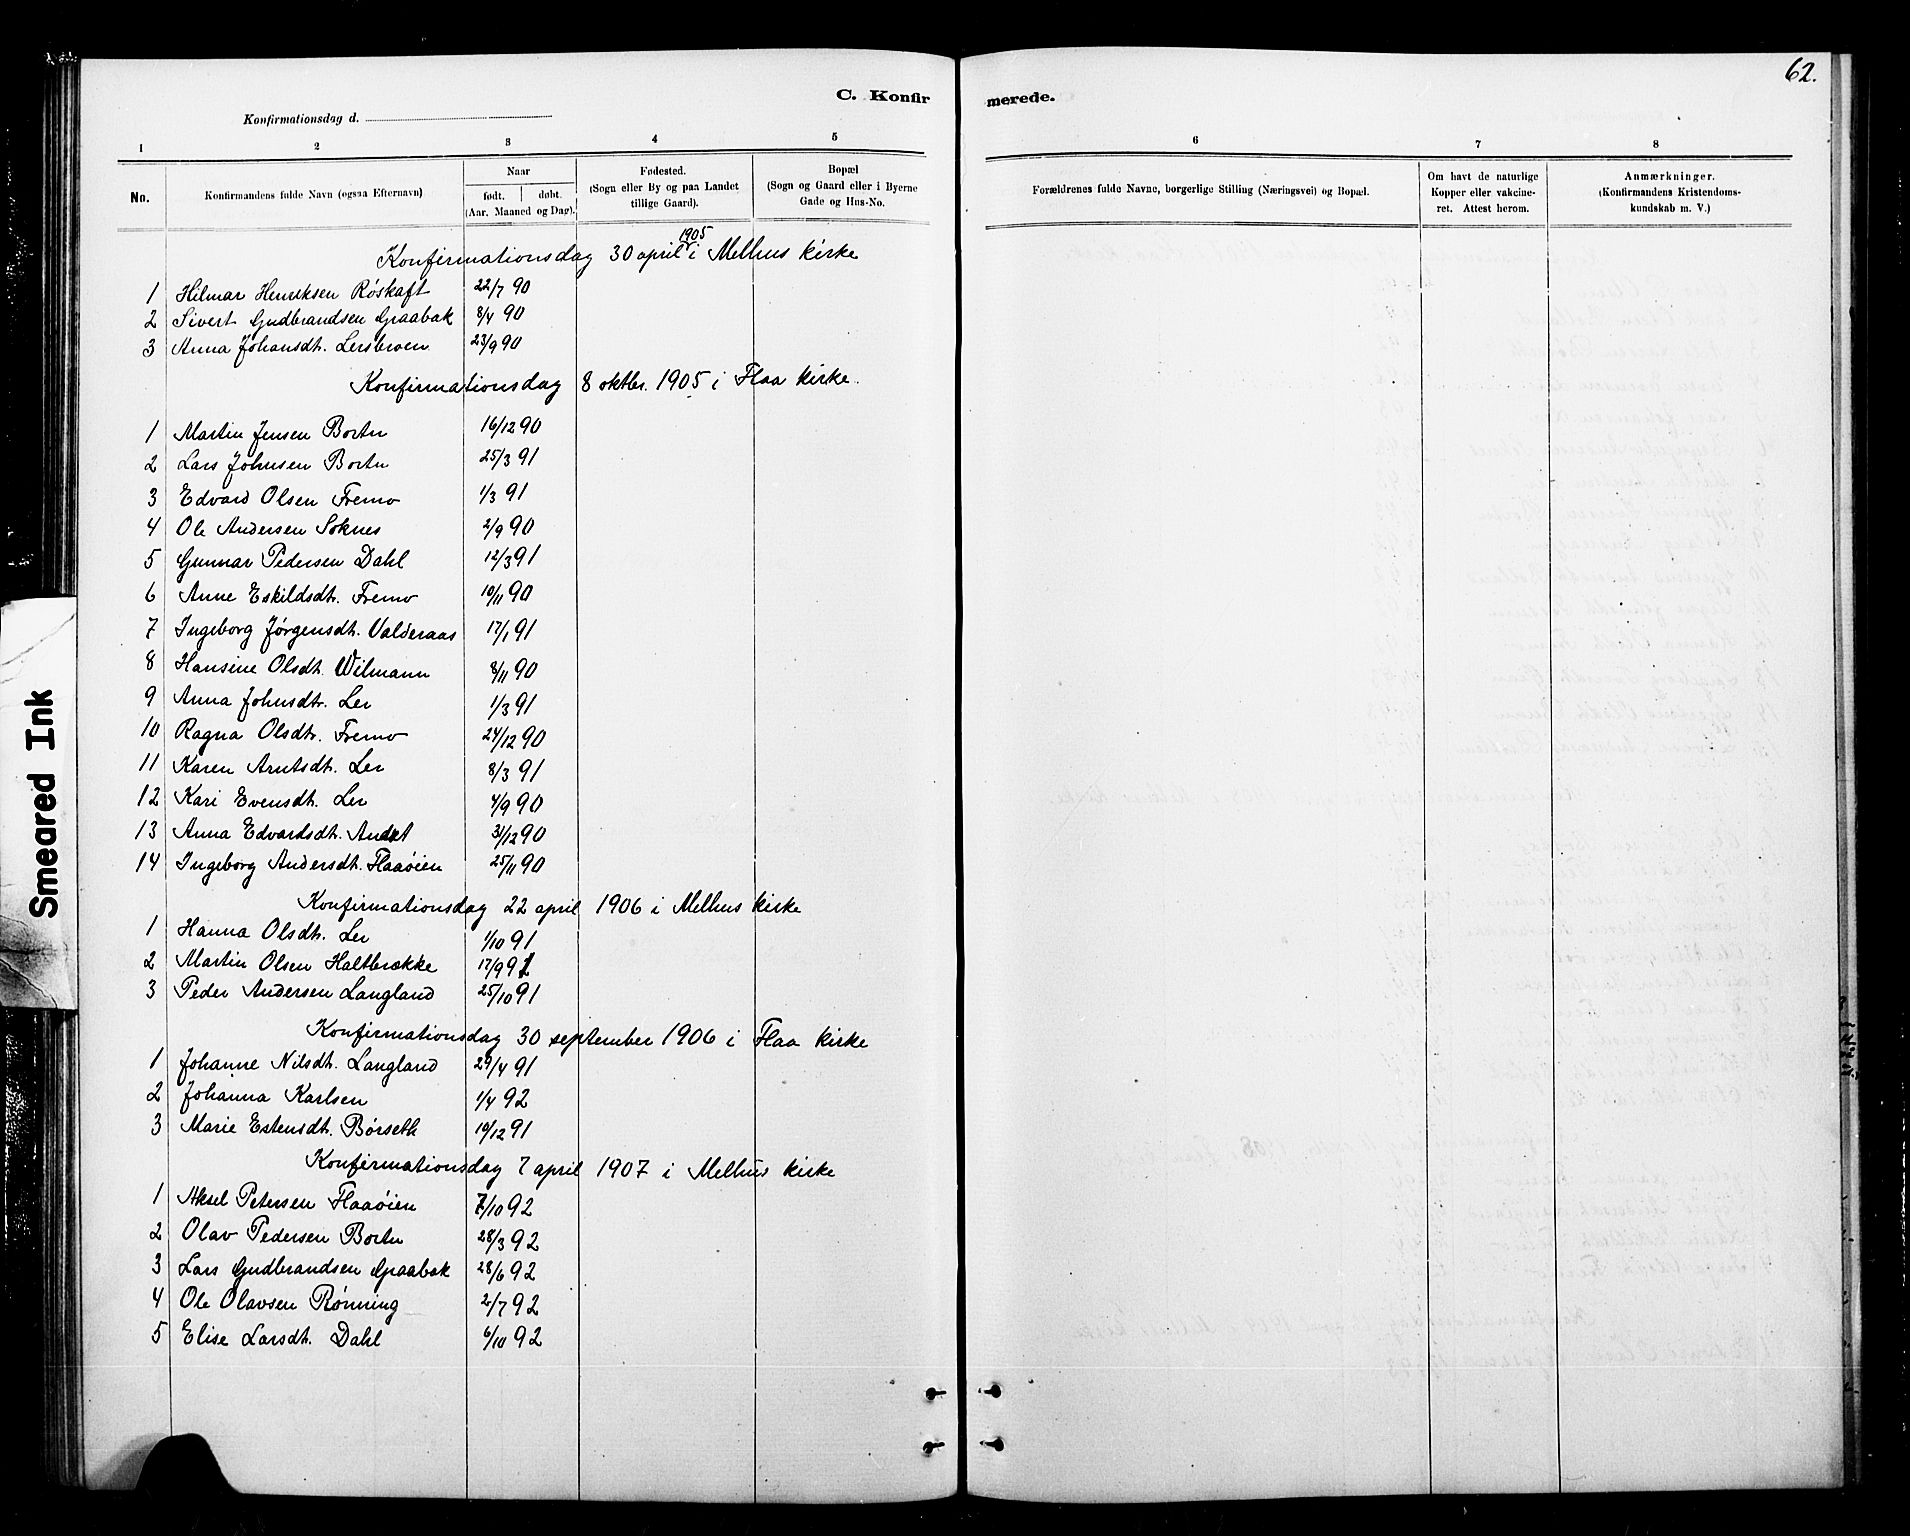 62.
C. Konfir merede.
Konfirmationsdag d.
1 2 3 4 5 6 7 8
No.
Konfirmandens fulde Navn (ogsaa Efternavn)
Naar
født. døbt.
(Aar. Maaned og Dag).
Fødested.
(Sogn eller By og paa Landet
tillige Gaard).
Bopæl
(Sogn og Gaard eller i Byerne
Gade og Hus-No.
Forældrenes fulde Navne, borgerlige Stilling (Næringsvei) og Bopæl.
Om havt de naturlige
Kopper eller vakcine-
ret. Attest herom.
Anmærkninger.
(Konfirmandens Kristendoms-
kundskab m. V.)
Konfirmationsdag 30 april 1905 i Melhus kirke
1 Hilmar Henriksen Røskaft 22/7 90
2 Sivert Gudbrandsen Graabak 8/4 90
3 Anna Johansdt. Lersbroen 23/9 90
Konfirmationsdag 8 oktbr. 1905 i Flaa kirke.
1 Martin Jensen Borten 16/12 90
2 Lars Johnsen Borten 25/3 91
3 Edvard Olsen Fremo 1/3 91
4 Ole Andersen Soknes 2/9 90
5 Gunnar Pedersen Dahl 12/3 91
6 Anne Eskildsdt. Fremo 10/11 90
7 Ingeborg Jørgensdt. Valderaas 17/1 91
8 Hansine Olsdt. Wilmann 8/11 90
9 Anna Johnsdt. Ler 1/3 91
10 Ragna Olsdt. Fremo 24/12 90
11 Karen Arntsdt. Ler 8/3 91
12 Kari Evensdt. Ler 4/9 90
13 Anna Edvardsdt. 31/12 90
14 Ingeborg Andersdt. Flaaøien 25/11 90
Konfirmationsdag 22 april 1906 i Melhus kirke
1 Hanna Olsdt. Ler 1/10 91
2 Martin Olsen Haltbrække 17/9 91
3 Peder Andersen Langland 25/10 91
Konfirmationsdag 30 september 1906 i Flaa kirke
1 Johanne Nilsdt. Langland 29/4 91
2 Johanna Karlsen 1/4 92
3 Marie Estensdt. Børseth 10/12 91
Konfirmationsdag 7 april 1907 i Melhus kirke
1 Aksel Petersen Flaaøien 7/10 92
2 Olav Pedersen Borten 28/3 92
3 Lars Gudbrandsen Graabak 28/6 92
4 Ole Olavsen Rønning 2/7 92
5 Elise Larsdt. Dahl 6/10 92
Smeared Ink